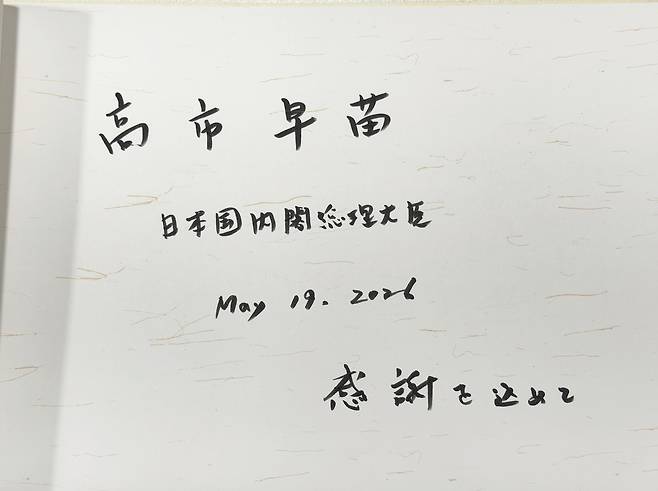 高市早苗
日本国内閣総理大臣
May 19. 2026
感謝を込めて